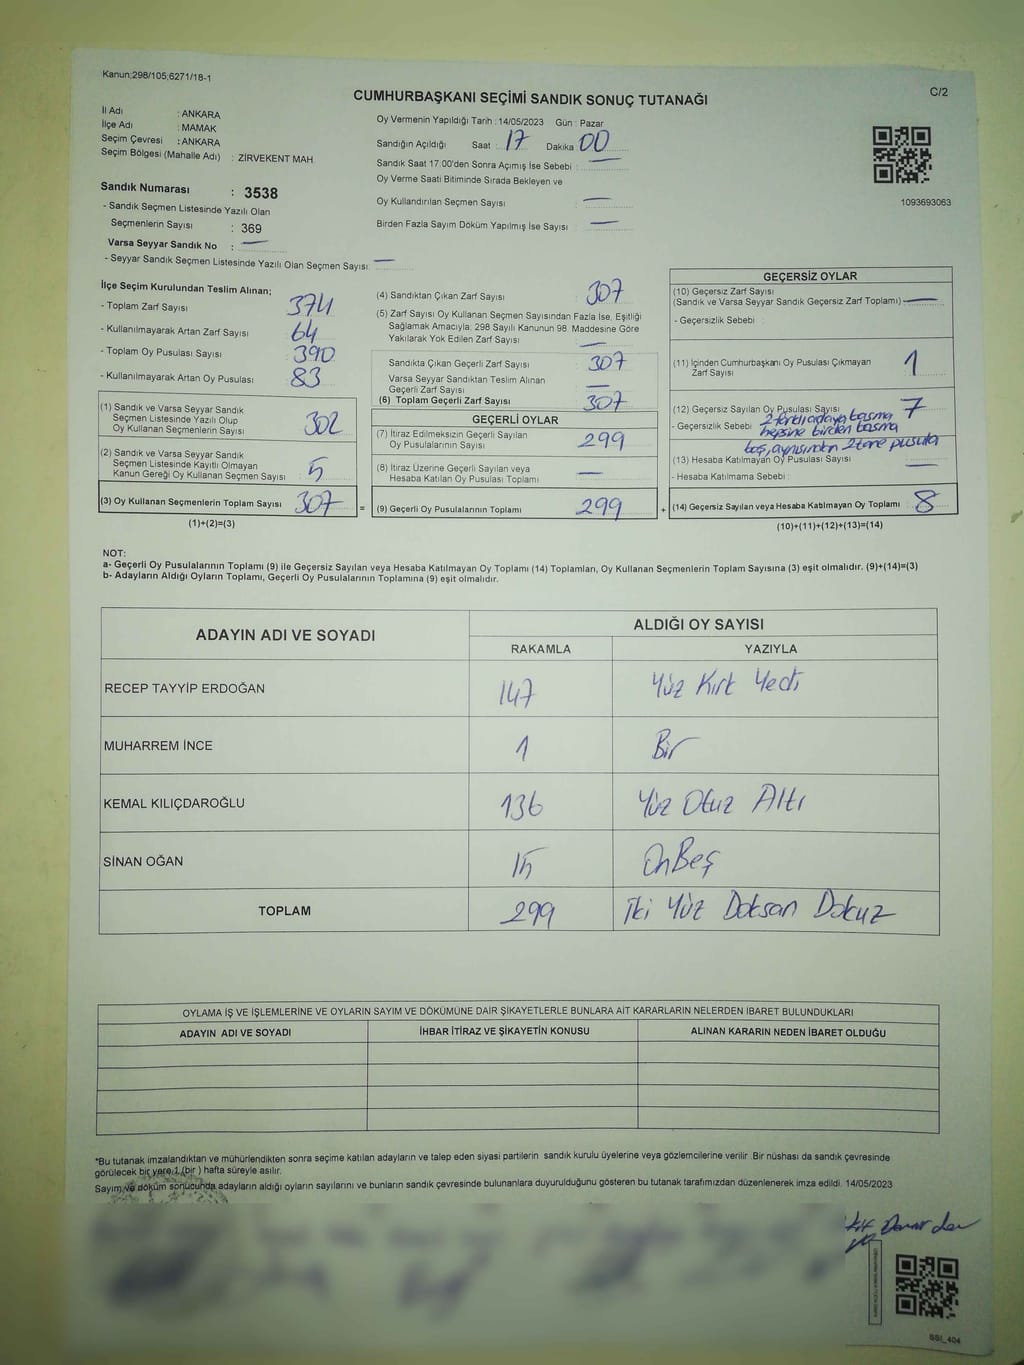 Kanun;298/105;6271/18-1
C/2
CUMHURBAŞKANI SEÇİMİ SANDIK SONUÇ TUTANAĞI
İl Adı : ANKARA
İlçe Adı : MAMAK
Seçim Çevresi : ANKARA
Seçim Bölgesi (Mahalle Adı) : ZİRVEKENT MAH.
Sandık Numarası : 3538
- Sandık Seçmen Listesinde Yazılı Olan
Seçmenlerin Sayısı : 369
Varsa Seyyar Sandık No : —
- Seyyar Sandık Seçmen Listesinde Yazılı Olan Seçmen Sayısı: —
Oy Vermenin Yapıldığı Tarih : 14/05/2023 Gün : Pazar
Sandığın Açıldığı Saat : 17 Dakika 00
Sandık Saat 17:00'den Sonra Açımış İse Sebebi : —
Oy Verme Saati Bitiminde Sırada Bekleyen ve
Oy Kullandırılan Seçmen Sayısı : —
Birden Fazla Sayım Döküm Yapılmış İse Sayısı : —
1093693063
İlçe Seçim Kurulundan Teslim Alınan;
- Toplam Zarf Sayısı : 374
- Kullanılmayarak Artan Zarf Sayısı : 64
- Toplam Oy Pusulası Sayısı : 390
- Kullanılmayarak Artan Oy Pusulası : 83
(1) Sandık ve Varsa Seyyar Sandık
Seçmen Listesinde Yazılı Olup
Oy Kullanan Seçmenlerin Sayısı : 302
(2) Sandık ve Varsa Seyyar Sandık
Seçmen Listesinde Kayıtlı Olmayan
Kanun Gereği Oy Kullanan Seçmen Sayısı : 5
(3) Oy Kullanan Seçmenlerin Toplam Sayısı : 307
(1)+(2)=(3)
=
(4) Sandıktan Çıkan Zarf Sayısı : 307
(5) Zarf Sayısı Oy Kullanan Seçmen Sayısından Fazla İse, Eşitliği
Sağlamak Amacıyla; 298 Sayılı Kanunun 98. Maddesine Göre
Yakılarak Yok Edilen Zarf Sayısı : —
Sandıkta Çıkan Geçerli Zarf Sayısı : 307
Varsa Seyyar Sandıktan Teslim Alınan
Geçerli Zarf Sayısı : —
(6) Toplam Geçerli Zarf Sayısı : 307
GEÇERLİ OYLAR
(7) İtiraz Edilmeksizin Geçerli Sayılan
Oy Pusulalarının Sayısı : 299
(8) İtiraz Üzerine Geçerli Sayılan veya
Hesaba Katılan Oy Pusulası Toplamı : —
(9) Geçerli Oy Pusulalarının Toplamı : 299
+
GEÇERSİZ OYLAR
(10) Geçersiz Zarf Sayısı
(Sandık ve Varsa Seyyar Sandık Geçersiz Zarf Toplamı) : —
- Geçersizlik Sebebi :
(11) İçinden Cumhurbaşkanı Oy Pusulası Çıkmayan
Zarf Sayısı : 1
(12) Geçersiz Sayılan Oy Pusulası Sayısı : 7
- Geçersizlik Sebebi : 2 farklı adaya basma
hepsine birden basma
boş, aynısından 2 tane pusula
(13) Hesaba Katılmayan Oy Pusulası Sayısı : —
- Hesaba Katılmama Sebebi :
(14) Geçersiz Sayılan veya Hesaba Katılmayan Oy Toplamı : 8
(10)+(11)+(12)+(13)=(14)
NOT:
a- Geçerli Oy Pusulalarının Toplamı (9) ile Geçersiz Sayılan veya Hesaba Katılmayan Oy Toplamı (14) Toplamları, Oy Kullanan Seçmenlerin Toplam Sayısına (3) eşit olmalıdır. (9)+(14)=(3)
b- Adayların Aldığı Oyların Toplamı, Geçerli Oy Pusulalarının Toplamına (9) eşit olmalıdır.
ADAYIN ADI VE SOYADI
ALDIĞI OY SAYISI
RAKAMLA YAZIYLA
RECEP TAYYİP ERDOĞAN 147 Yüz Kırk Yedi
MUHARREM İNCE 1 Bir
KEMAL KILIÇDAROĞLU 136 Yüz Otuz Altı
SİNAN OĞAN 15 OnBeş
TOPLAM 299 İki Yüz Doksan Dokuz
OYLAMA İŞ VE İŞLEMLERİNE VE OYLARIN SAYIM VE DÖKÜMÜNE DAİR ŞİKAYETLERLE BUNLARA AİT KARARLARIN NELERDEN İBARET BULUNDUKLARI
ADAYIN ADI VE SOYADI İHBAR İTİRAZ VE ŞİKAYETİN KONUSU ALINAN KARARIN NEDEN İBARET OLDUĞU
*Bu tutanak imzalandıktan ve mühürlendikten sonra seçime katılan adayların ve talep eden siyasi partilerin sandık kurulu üyelerine veya gözlemcilerine verilir. Bir nüshası da sandık çevresinde
görülecek bir yere 1 (bir ) hafta süreyle asılır.
Sayım ve döküm sonucunda adayların aldığı oyların sayılarını ve bunların sandık çevresinde bulunanlara duyurulduğunu gösteren bu tutanak tarafımızdan düzenlenerek imza edildi. 14/05/2023
SSI_404